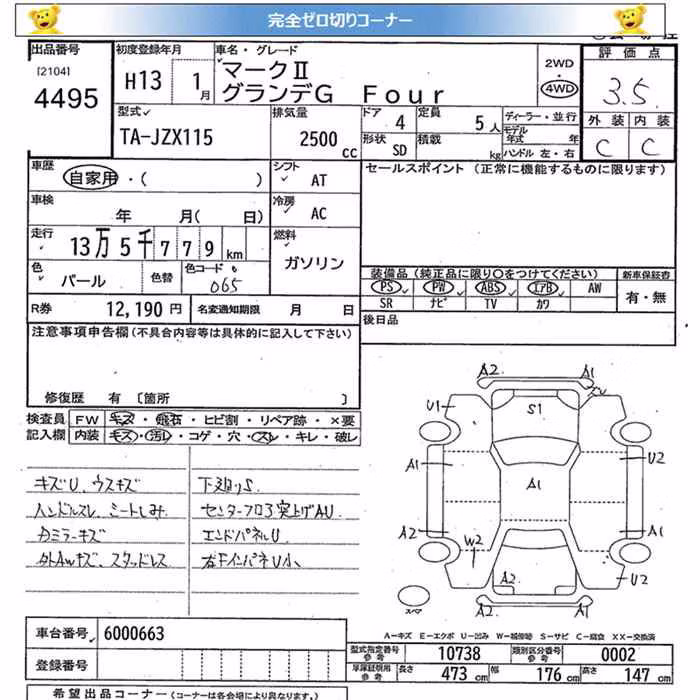 完全ゼロ切りコーナー
出品番号
[2104]
4495
初度登録年月
H13 1月
車名・グレード
マークⅡ
グランデG Four
2WD
4WD
評価点
3.5
外装 内装
C C
型式
TA-JZX115
排気量
2500 CC
ドア 4
定員 5人
形状 SD
積載 kg
ディーラー・並行
モデル年式 年
ハンドル 左・右
車歴
自家用・( )
シフト AT
セールスポイント (正常に機能するものに限ります)
車検
年 月( 日)
冷房 AC
走行
13万5千779km
燃料
ガソリン
色 パール
色替
色コード 065
装備品(純正品に限り〇をつけてください)
新車保証書
PS PW ABS エアB AW
SR ナビ TV カワ
有・無
R券 12,190円
名変通知期限 月 日
後日品
注意事項申告欄(不具合内容等は具体的に記入して下さい)
修復歴 有 [箇所 ]
検査員記入欄
FW キズ・飛石・ヒビ割・リペア跡・×要
内装 キズ・汚レ・コゲ・穴・スレ・キレ・破レ
キズU、ウスキズ
ハンドルスレ、シートしみ
カミラーキズ
外Awキズ、スタッドレス
下廻りS.
センターフロア突上げAU.
エンドパネルU
右FインパネU小、
A2 A1
U1
S1
A1 U2
A1
A2 A1
W2
A2 U2
スペア
A2 A1
A-キズ E-エクボ U-凹み W-補修跡 S-サビ C-腐食 XX-交換済
車台番号 6000663
登録番号
型式指定番号 参考 10738
類別区分番号 参考 0002
長さ 473cm 幅 176cm 高さ 147cm
希望出品コーナー(コーナーは各会場により異なります。)